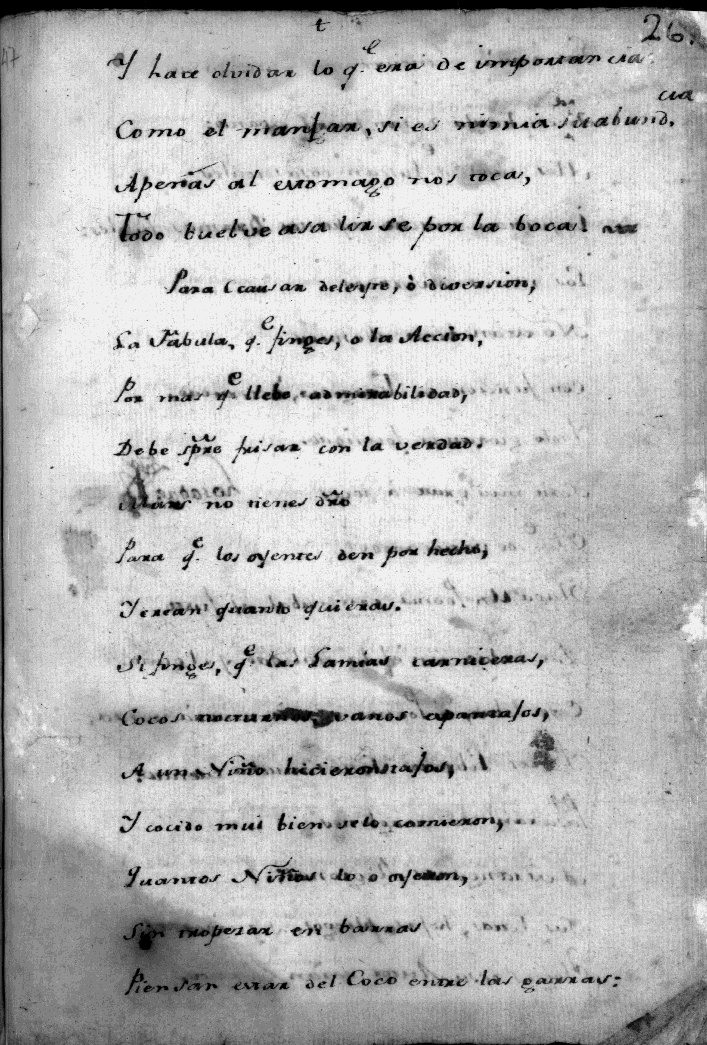 26.
47
Y hace olvidar lo q.e era de importancia.
Como el manjar, si es nimia su abund.cia
Apenas al estomago nos toca,
Todo buelve a salirse por la boca.
Para causar deleyte, ò diversion,
La Fábula, q.e finges, o la Accion,
Por mas q.e llebe admirabilidad,
Debe spre frisar con la verdad.
no tienes dro
Para q.e los oyentes den por hecho,
Y crean quanto quieras.
Si finges, q.e las Lamias carniceras,
Cocos nocturnos, vanos espantajos,
A un Niño hicieron tajos,
Y cocido mui bien se lo comieron,
Quantos Niños lo oyeron,
Sin tropezar en barras
Piensan estar del Coco entre las garras: